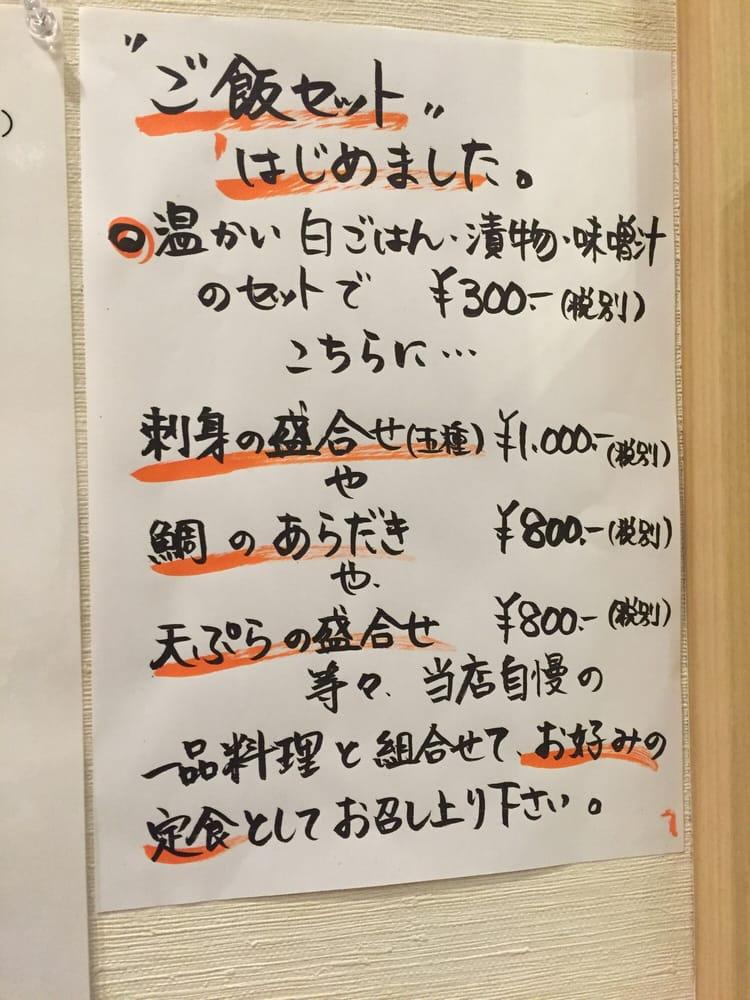 "ご飯セット"
はじめました。
○温かい白ごはん・漬物・味噌汁
のセットで ¥300.-(税別)
こちらに…
刺身の盛合せ(五種) ¥1.000.-(税別)
や
鯛のあらだき ¥800.-(税別)
や、
天ぷらの盛合せ ¥800.-(税別)
等々、当店自慢の
一品料理と組合せて、お好みの
定食としてお召し上り下さい。